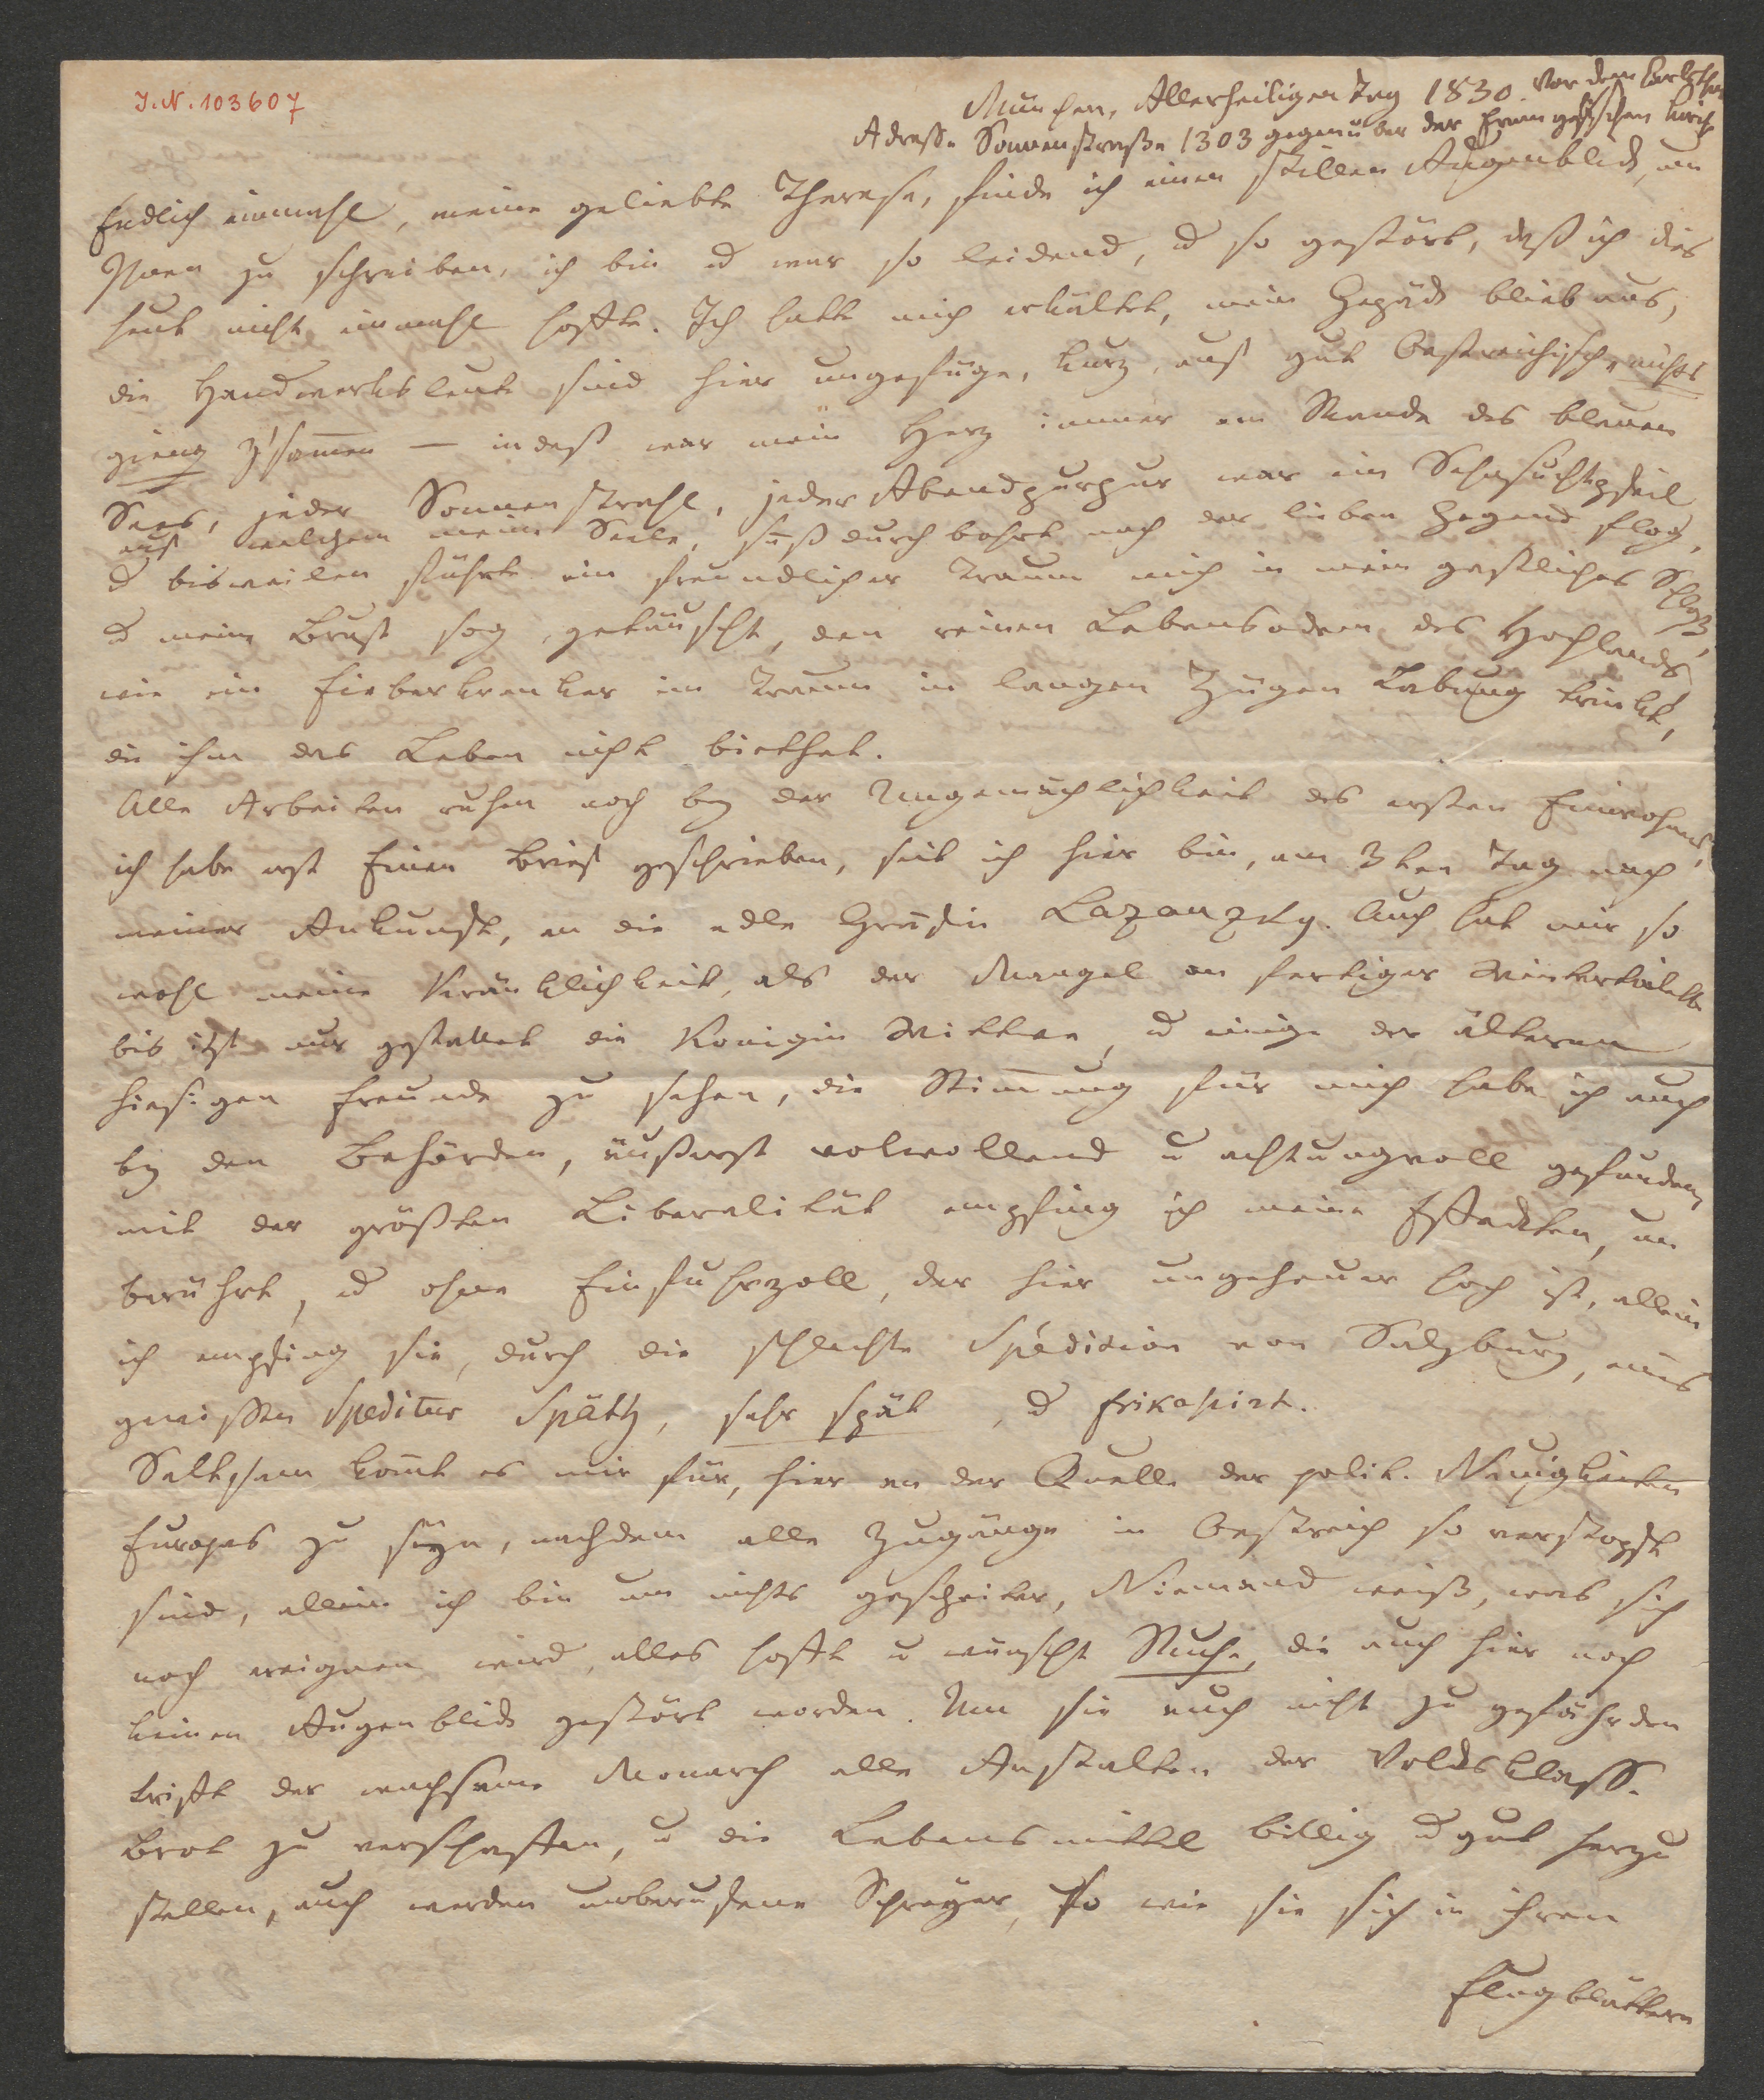 J.N. 103607
München, Allerheiligen Tag 1830. Vor dem Carlsthor
Adresse Sonnenstraße 1303 gegenüber der Evangelischen Kirche
Endlich einmahl, meine geliebte Therese, finde ich einen stillen Augenblick, um
Ihnen zu schreiben, ich bin u war so leidend, u so gestört, daß ich dies
heut nicht einmahl hoffte. Ich hatte mich erkältet, mein Gepäck blieb aus,
die Handwerksleute sind hier ungefüge, kurz, auf gut Oestreichisch, nichts
gieng z'samen — indeß war mein Herz immer am Rande des blauen
Sees, jeder Sonnenstrahl, jeder Abendpurpur war ein Sehnsuchtspfeil
auf welchem meine Seele, süß durchbohrt nach der lieben Gegend flog,
u bisweilen führte ein freundlicher Traum mich in mein gastliches Schloß,
u meine Brust sog, getäuscht, den reinen Lebensodem des Hochlands,
wie ein Fieberkranker im Traum in langen Zügen Labung trinkt,
die ihm das Leben nicht biethet.
Alle Arbeiten ruhen noch bey der Ungemüthlichkeit des ersten Einwohnens,
ich habe erst Einen Brief geschrieben, seit ich hier bin, am 3ten Tag nach
meiner Ankunft, an die edle Gräfin Lazanzky. Auch hat mir so
wohl meine Kränklichkeit, als der Mangel an fertiger Wintertoilette
bis itzt nur gestattet die Königin Wittwe, u einige der älteren
hiesigen Freunde zu sehen, die Stimung für mich habe ich auch
bey den Behörden, äußerst wolwollend u achtungvoll gefunden,
mit der größten Liberalität empfing ich meine Effecten, un
berührt, u ohne Einfuhrzoll, der hier ungeheuer hoch ist, allein
ich empfing sie, durch die schlechte Spedition von Salzburg, eines
gewissen Speditur Späth, sehr spät, u frikasirt.
Seltsam komt es mir für, hier an der Quelle der polit. Neuigkeiten
Europas zu seyn, nachdem alle Zugänge in Oestreich so verstopft
sind, allein ich bin um nichts gescheiter, Niemand weiß, was sich
noch ereignen wird, alles hofft u wünscht Ruhe, die auch hier noch
keinen Augenblick gestört worden. Um sie auch nicht zu gefährden
trifft der wachsame Monarch alle Anstalten der Volksklasse
Brot zu verschaffen, u die Lebensmittel billig u gut herzu
stellen, auch werden unberufene Schreyer, so wie sie sich in ihren
Flugblättern